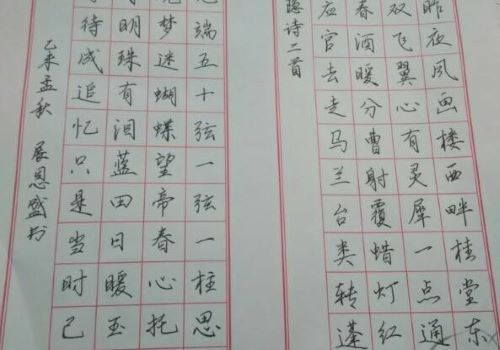 隐诗二首
昨夜风画楼西畔桂堂东
双飞翼心有灵犀一点通
春酒暖分曹射覆蜡灯红
应官去走马兰台类转蓬
端五十弦一弦一柱思
梦迷蝴蝶望帝春心托
明珠有泪蓝田日暖玉
待成追忆只是当时已
乙未孟秋 展恩盛书